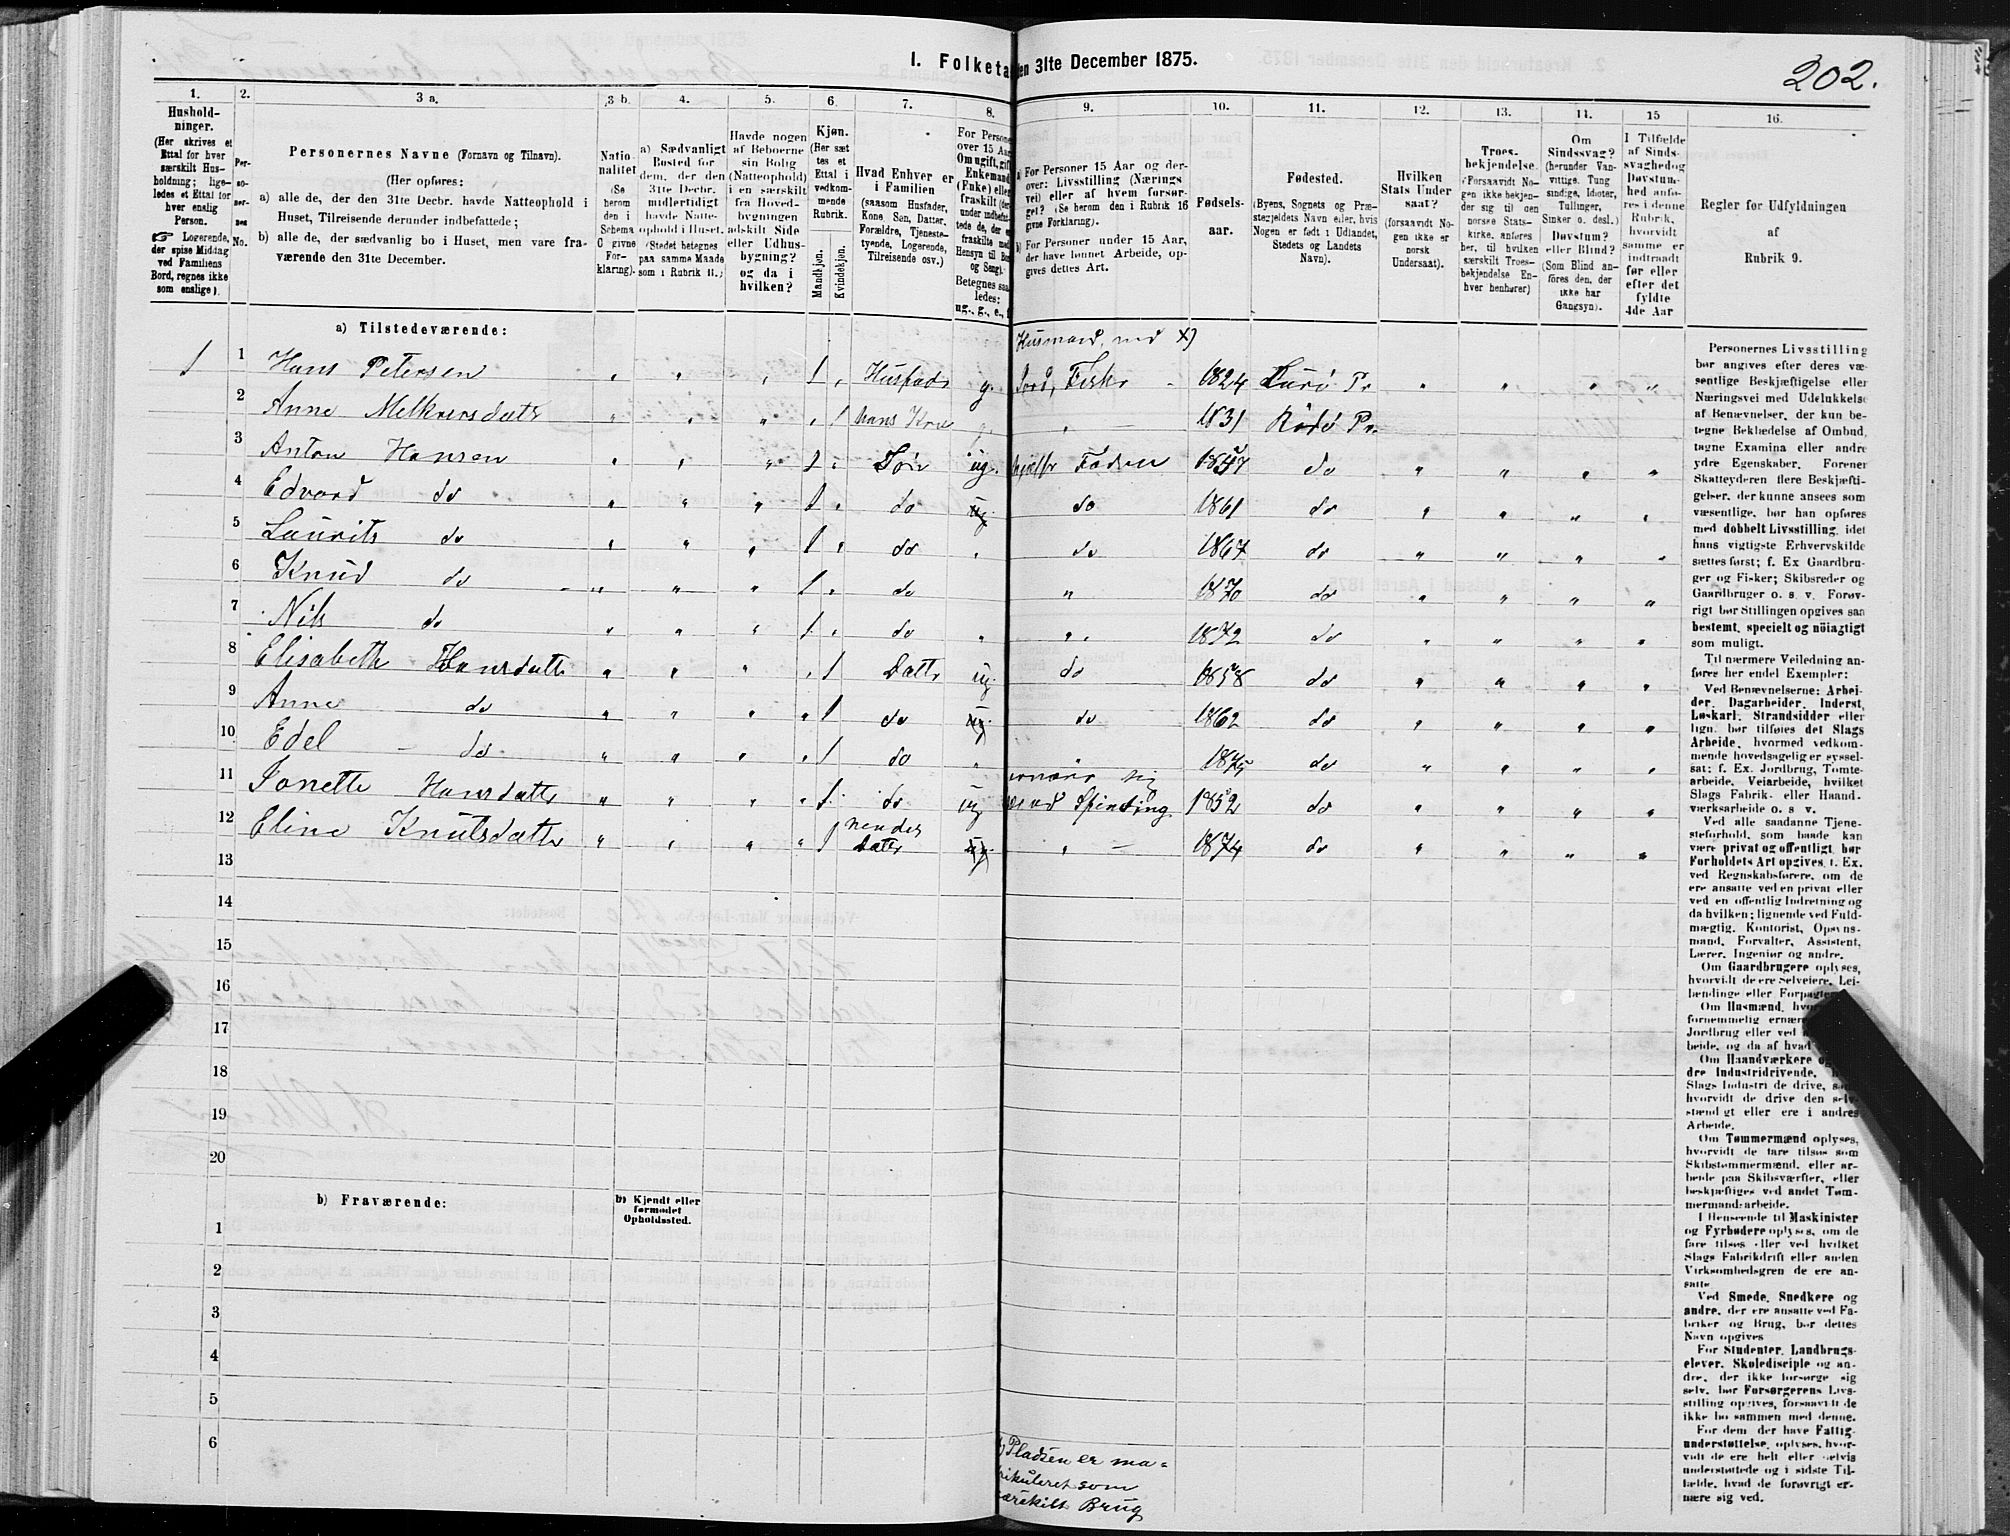 202.
I. Folketæ
en 31te December 1875.
1. 2. 3 a. 3 b. 4. 5. 6. 7. 8. 9. 10. 11. 12. 13. 14. 15 16.
Hushold-
ninger.
(Her skrives et
Ettal for hver
særskilt Hus-
holdning; lige-
ledes et Ettal for
hver enslig
Person.
Logerende,
der spise Middag
ved Familiens
Bord, regnes ikke
som enslige).
Per-
so-
ner-
nes
No.
Personernes Navne (Fornavn og Tilnavn).
(Her opføres:
a) alle de, der den 31te Decbr. havde Natteophold i
Huset, Tilreisende derunder indbefattede;
b) alle de, der sædvanlig bo i Huset, men vare fra-
værende den 31te December.
Natio-
nalitet
(Se
herom
den i
Schema
C givne
For-
klaring).
a) Sædvanligt
Bosted for
dem, der den
31te Decbr.
midlertidigt
havde Natte-
ophold i Huset.
(Stedet betegnes
paa samme Maade
som i Rubrik B.)
Havde nogen
af Beboerne
sin Bolig
(Natteophold)
i en særskilt
fra Hoved-
bygningen
adskilt Side
eller Udhus-
bygning?
og da i
hvilken?
Kjøn.
(Her sæt
tes et
Ettal i
vedkom-
mende
Rubrik.
Mandkjøn.
Kvindekjøn.
Hvad Enhver er
i Familien
(saasom Husfader,
Kone, Søn, Datter,
Forældre, Tjeneste-
tyende, Logerende,
Tilreisende osv.)
For Persone
over 15 Aar
Om ugift, gift
Enkemand
(Enke) eller
fraskilt
Betegnes saa
ledes:
ug., g., e., f
a) For Personer 15 Aar og der-
over: Livsstilling (Nærings
vei) eller af hvem forsør-
get? (Se herom den i Rubrik 16
givne Forklaring).
b) For Personer under 15 Aar,
der have lønnet Arbeide, op-
gives dettes Art.
Fødsels-
aar.
Fødested.
(Byens, Sognets og Præ-
stegjeldets Navn eller, hvis
Nogen er født i Udlandet,
Stedets og Landets
Navn).
Hvilken
Stats Under
saat?
(forsaavidt No-
gen ikke er
norsk
Undersaat).
Troes-
bekjendelse.
(Forsaavidt No-
gen ikke bekjen-
der sig til den
norske Stats-
kirke, anføres
her, til hvilken
særskilt Troes-
bekjendelse En-
hver henhører)
Om
Sindssvag?
(herunder Van-
vittige, Tung
sindige, Idioter,
Tullinger,
Sinker o. desl.)
Døvstum?
eller Blind?
(Som Blind an-
føres den, der
ikke har
Gangsyn).
I Tilfælde
af Sinds-
svaghed og
Døvstum-
hed anfø-
res i denne
Rubrik,
hvorvidt
samme er
indtraadt
før eller
efter det
fyldte
4de Aar
Regler for Udfyldningen
af
Rubrik 9.
a) Tilstedeværende:
Husmand, med X)
1 1 Hans Petersen 1 Husfader g. Jord, Fisker 1824 Lurø Pr
2 Anne Melkiorsdatter 1 hans Kone g. 1831 Rødø Pr.
3 Anton Hansen 1 Søn ug. hjælper Faderen 1857 do
4 Edvard do 1 do ug. do 1861 do
5 Laurits do 1 do do 1867 do
6 Knud do 1 do 1870 do
7 Nils do 1 do 1872 do
8 Elisabeth Hansdatter 1 Datter ug. do 1858 do
9 Anne do 1 do ug. do 1862 do
10 Edel do 1 do 1875 do
11 Jonette Hansdatter 1 do ug ernærer sig ved Spinding 1852 do
12 Eline Knutsdatter 1 hendes Datter ug. 1874 do
13
14
15
16
17
18
19
20
b) Fraværende:
b) Kjendt eller
formodet
Opholdssted.
1
2
3
4
5
6
Pladsen er ma-
rikuleret som
ærskilt Brug
Personernes Livsstilling
bør angives efter deres væ-
sentlige Beskjæftigelse eller
Næringsvei med Udelukkelse
af Benævnelser, der kun be-
tegne Beklædelse af Ombud,
tagne Examina eller andre
ydre Egenskaber. Forener
Skatteyderen flere Beskjæfti-
gelser, der kunne ansees som
væsentlige, bør han opføres
med dobbelt Livsstilling, idet
hans vigtigste Erhvervskilde
sættes først; f. Ex Gaardbru-
ger og Fisker; Skibsreder og
Gaardbruger o. s. v. Forøv-
rigt bør Stillingen opgives saa
bestemt, specielt og nöiagtigt
som muligt.
Til nærmere Veiledning an-
føres her endel Exempler:
Ved Benævnelserne: Arbei-
der, Dagarbeider, Inderst,
Løskarl, Strandsidder eller
lign. bør tilføies det Slags
Arbeide, hvormed vedkom-
mende hovedsagelig er syssel-
sat; f. Ex. Jordbrug, Tomte-
arbeide, Veiarbeide, hvilket
Slags Fabrik- eller Haand-
værksarbeide o. s. v.
Ved alle saadanne Tjene-
steforhold, som baade kan
være privat og offentligt, bør
Forholdets Art opgives, t. Ex.
ved Regnskabsførere, om de
ere ansatte ved en privat eller
ved en offentlig Indretning og
da hvilken; lignende ved Fuld-
mægtig, Kontorist, Opsyns-
mand, Forvalter, Assistent,
Lærer, Ingeniør og andre.
Om Gaardbrugere oplyses,
hvorvidt de ere Selveiere, Lei-
lændinge eller Forpagtere
Om Husmænd, hvo
fornemmelig ernær
Jordbrug eller ved
beide, og da af hvad
Om Haandværkere og
dre Industridrivende,
Slags Industri de drive,
hvorvidt de drive den selv-
stændigt eller ere i andres
Arbeide.
Om Tømmermænd oplyses,
hvorvidt de fare tilsøs som
Skibstømmermænd, eller ar-
beide paa Skibsværfter, eller
beskjæftiges ved andet Tøm-
mermandsarbeide.
I Henseende til Maskinister
og Fyrbødere oplyses, om de
fare tilsøs eller ved hvilket
Slags Fabrikdrift eller anden
Virksomhedsgren de ere an-
satte.
Ved Smede, Snedkere og
andre, der ere ansatte ved Fa-
briker og Brug, bør dettes
Navn opgives
For Studenter, Landbrugs-
elever, Skoledisciple og an-
dre, der ikke forsørge sig
selv, bør Forsørgerens Livs-
stilling opgives, forsaavidt de
ikke bo sammen med denne.
For dem, der have Fattig-
understøttelse, oplyses, hvor-
vidt de ere helt eller delvis
understøttede og i sidste Til-
fælde, hvad de forøvrigt er-
nære sig ved.